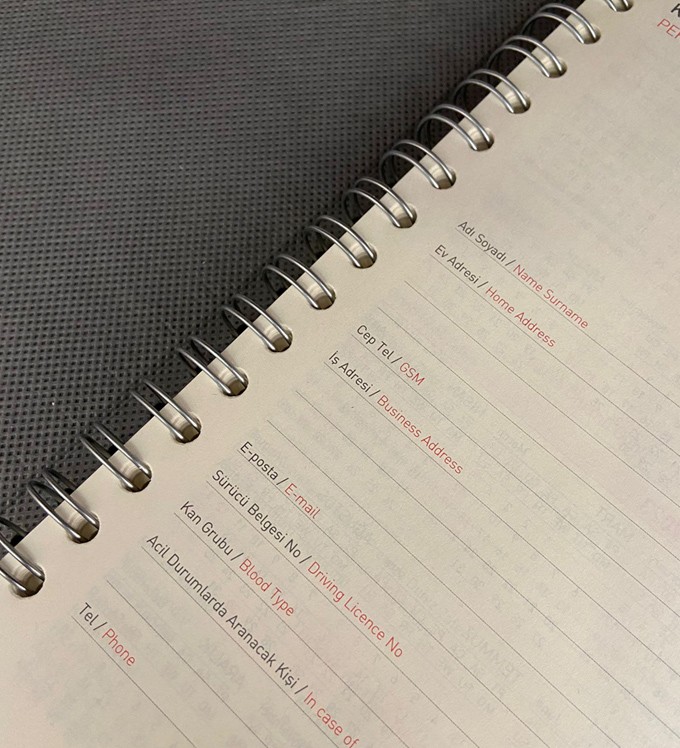 Adı Soyadı / Name Surname
Ev Adresi / Home Address
Cep Tel / GSM
İş Adresi / Business Address
E-posta / E-mail
Sürücü Belgesi No / Driving Licence No
Kan Grubu / Blood Type
Acil Durumlarda Aranacak Kişi / In case of
Tel / Phone